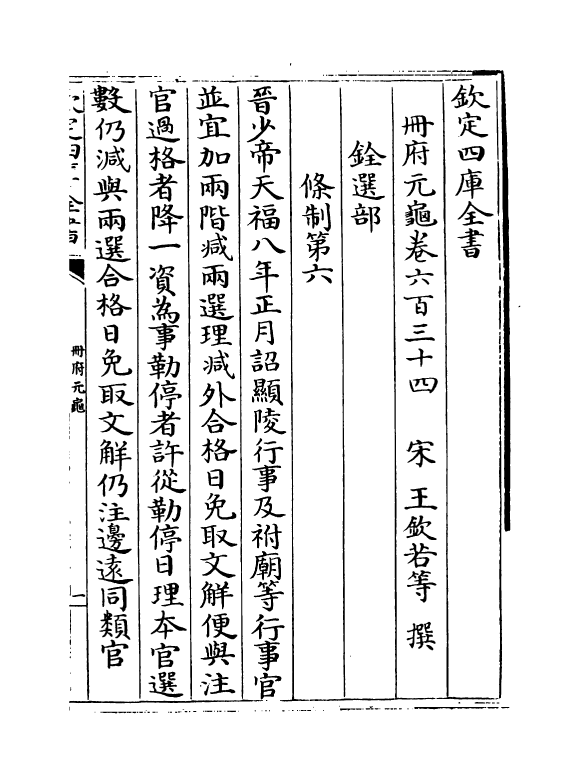 欽定四庫全書
冊府元龜卷六百三十四 宋 王欽若等 撰
銓選部
條制第六
晉少帝天福八年正月詔顯陵行事及祔廟等行事官
並宜加兩階減兩選理減外合格日免取文解便與注
官過格者降一資為事勒停者許從勒停日理本官選
數仍減與兩選合格日免取文解仍注邊遠同類官
冊府元龜
一